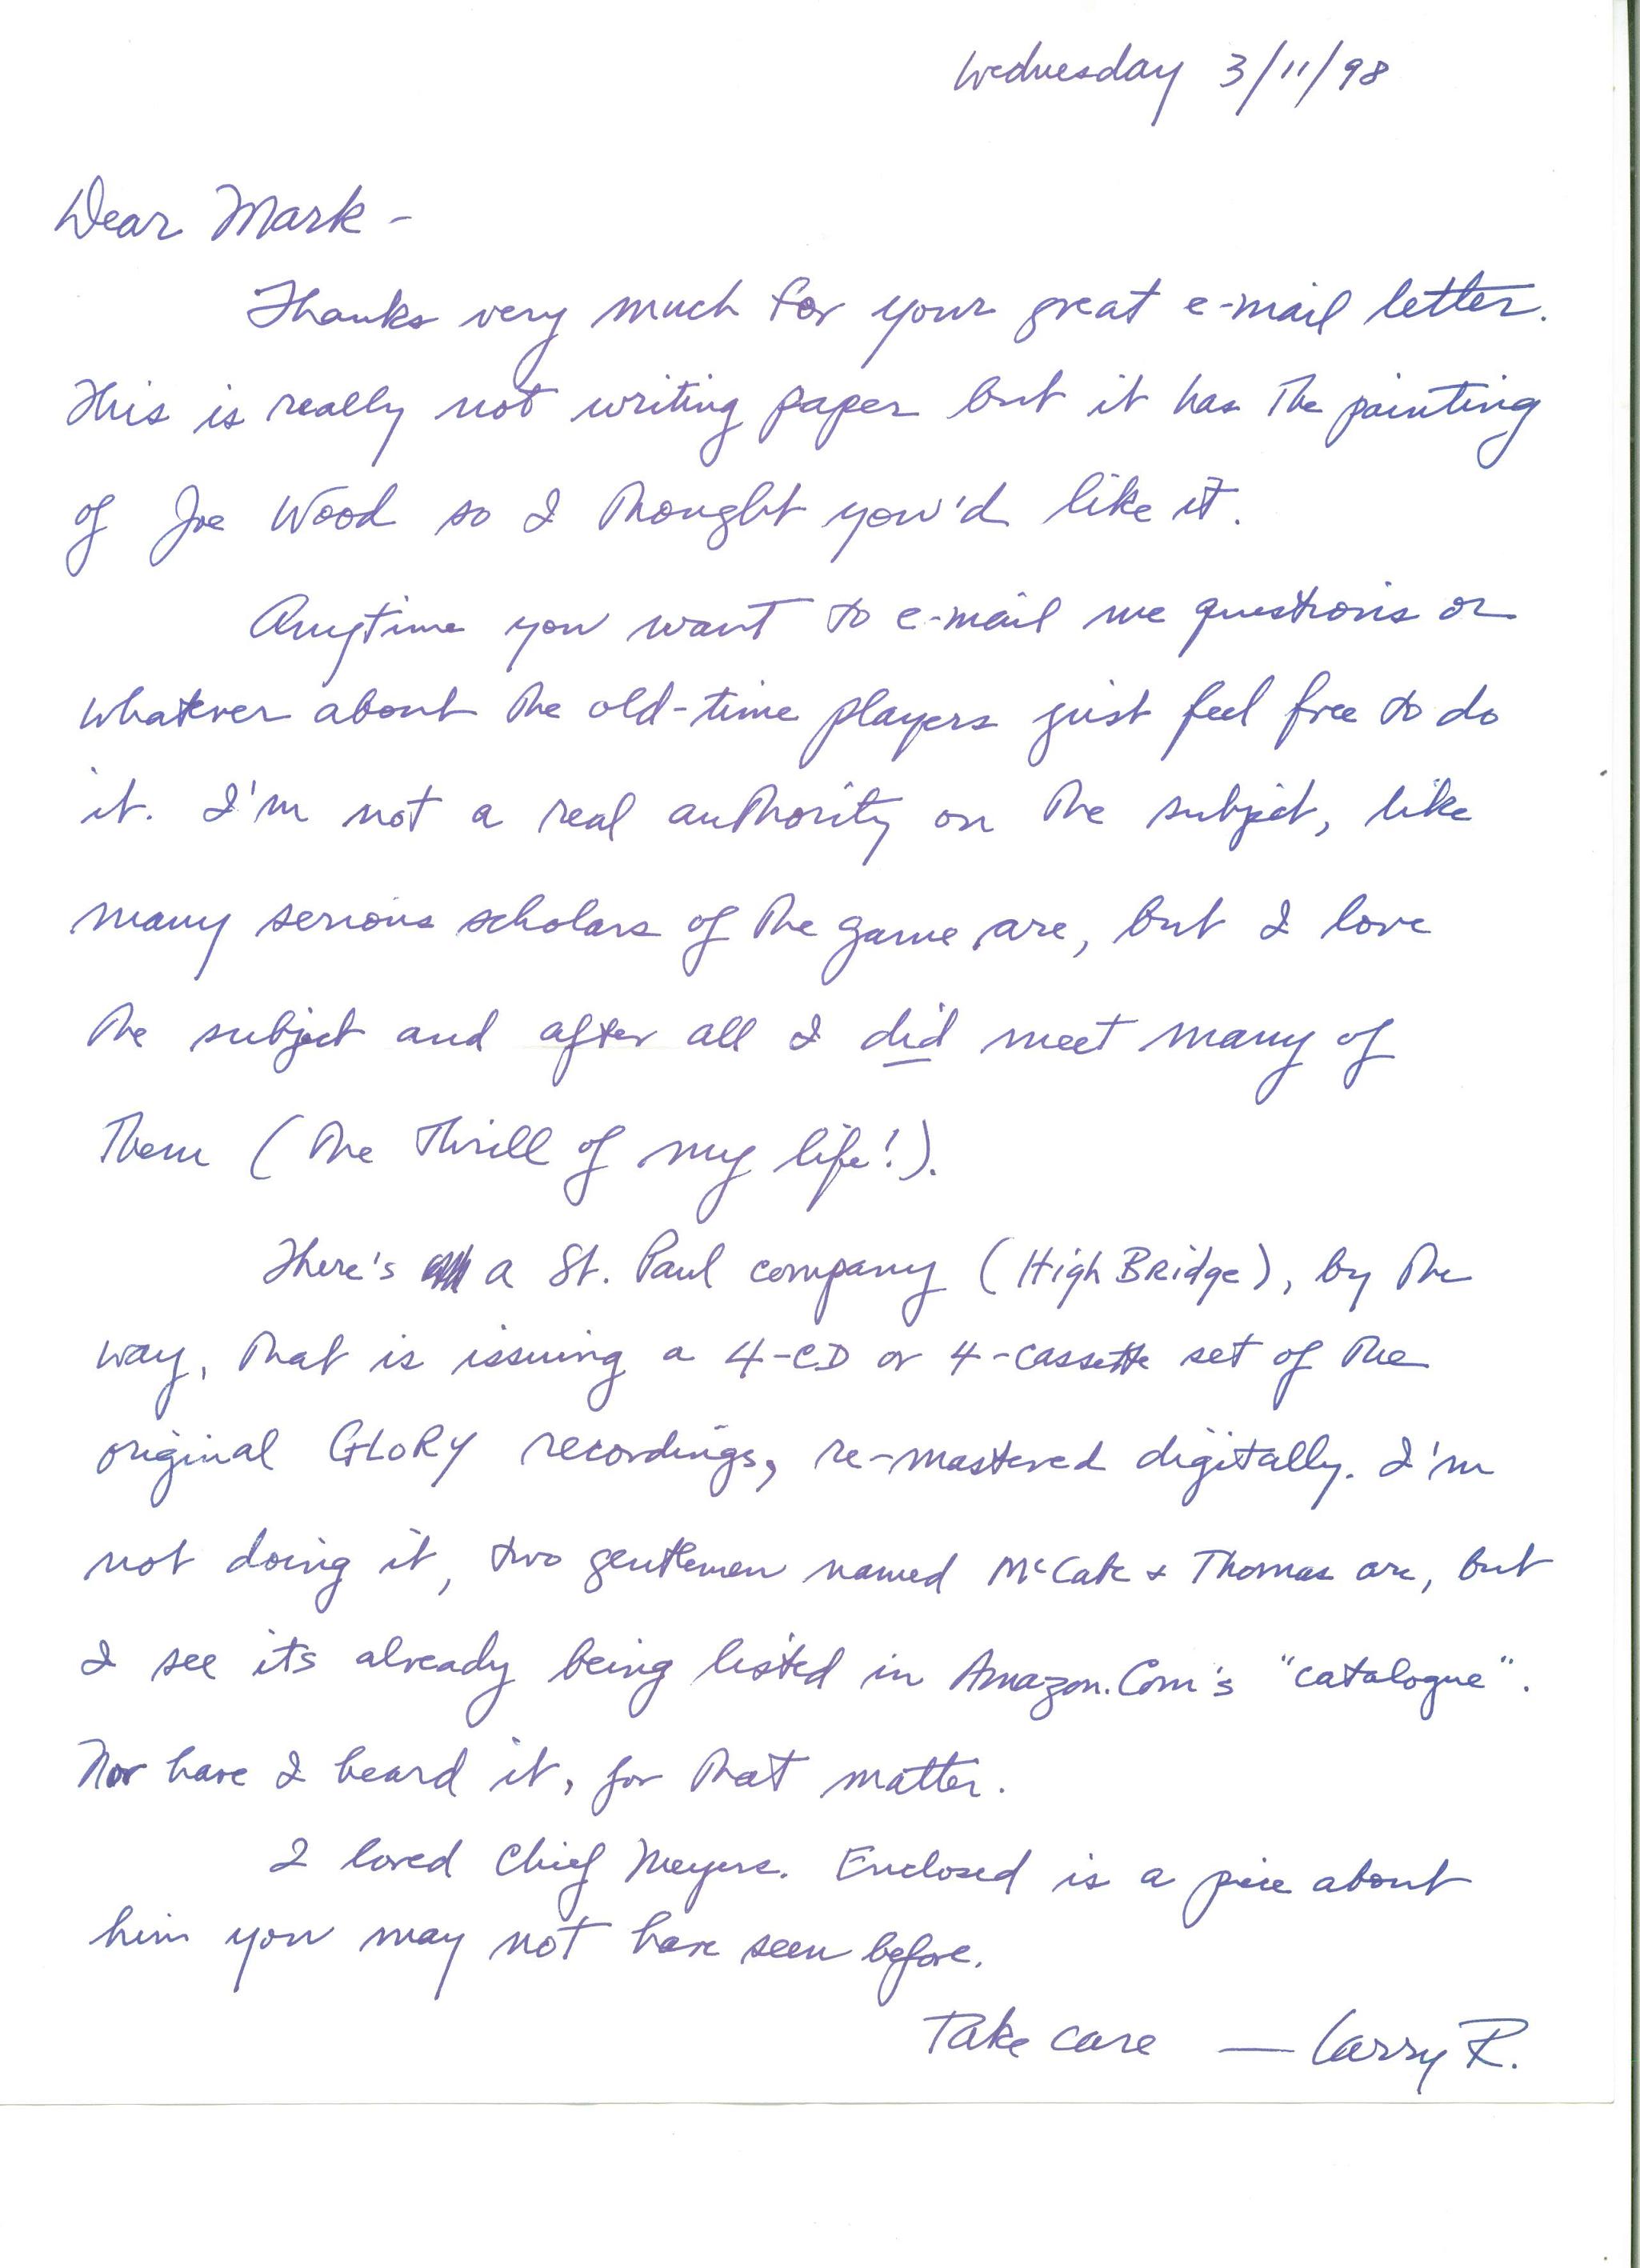 Wednesday 3/11/98
Dear Mark -
Thanks very much for your great e-mail letter.
This is really not writing paper but it has the painting
of Joe Wood so I thought you'd like it.
Anytime you want to e-mail me questions or
whatever about the old-time players just feel free to do
it. I'm not a real authority on the subject, like
many serious scholars of the game are, but I love
the subject and after all I did meet many of
them (the thrill of my life!).
There's a St. Paul company (HighBridge), by the
way, that is issuing a 4-CD or 4-cassette set of the
original GLORY recordings, re-mastered digitally. I'm
not doing it, two gentlemen named McCabe & Thomas are, but
I see its already being listed in Amazon.Com's "catalogue".
Nor have I heard it, for that matter.
I loved Chief Meyers. Enclosed is a piece about
him you may not have seen before.
Take care — Larry R.